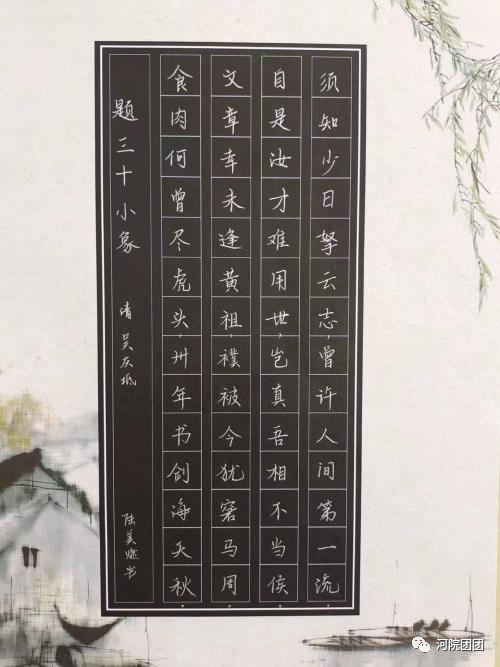 题三十小象 清 吴庆坻 陆美燃书
食肉何曾尽虎头,卅年书剑海天秋。
文章幸未逢黄祖,襆被今犹窘马周。
自是汝才难用世,岂真吾相不当侯。
须知少日拏云志,曾许人间第一流。
河院团团